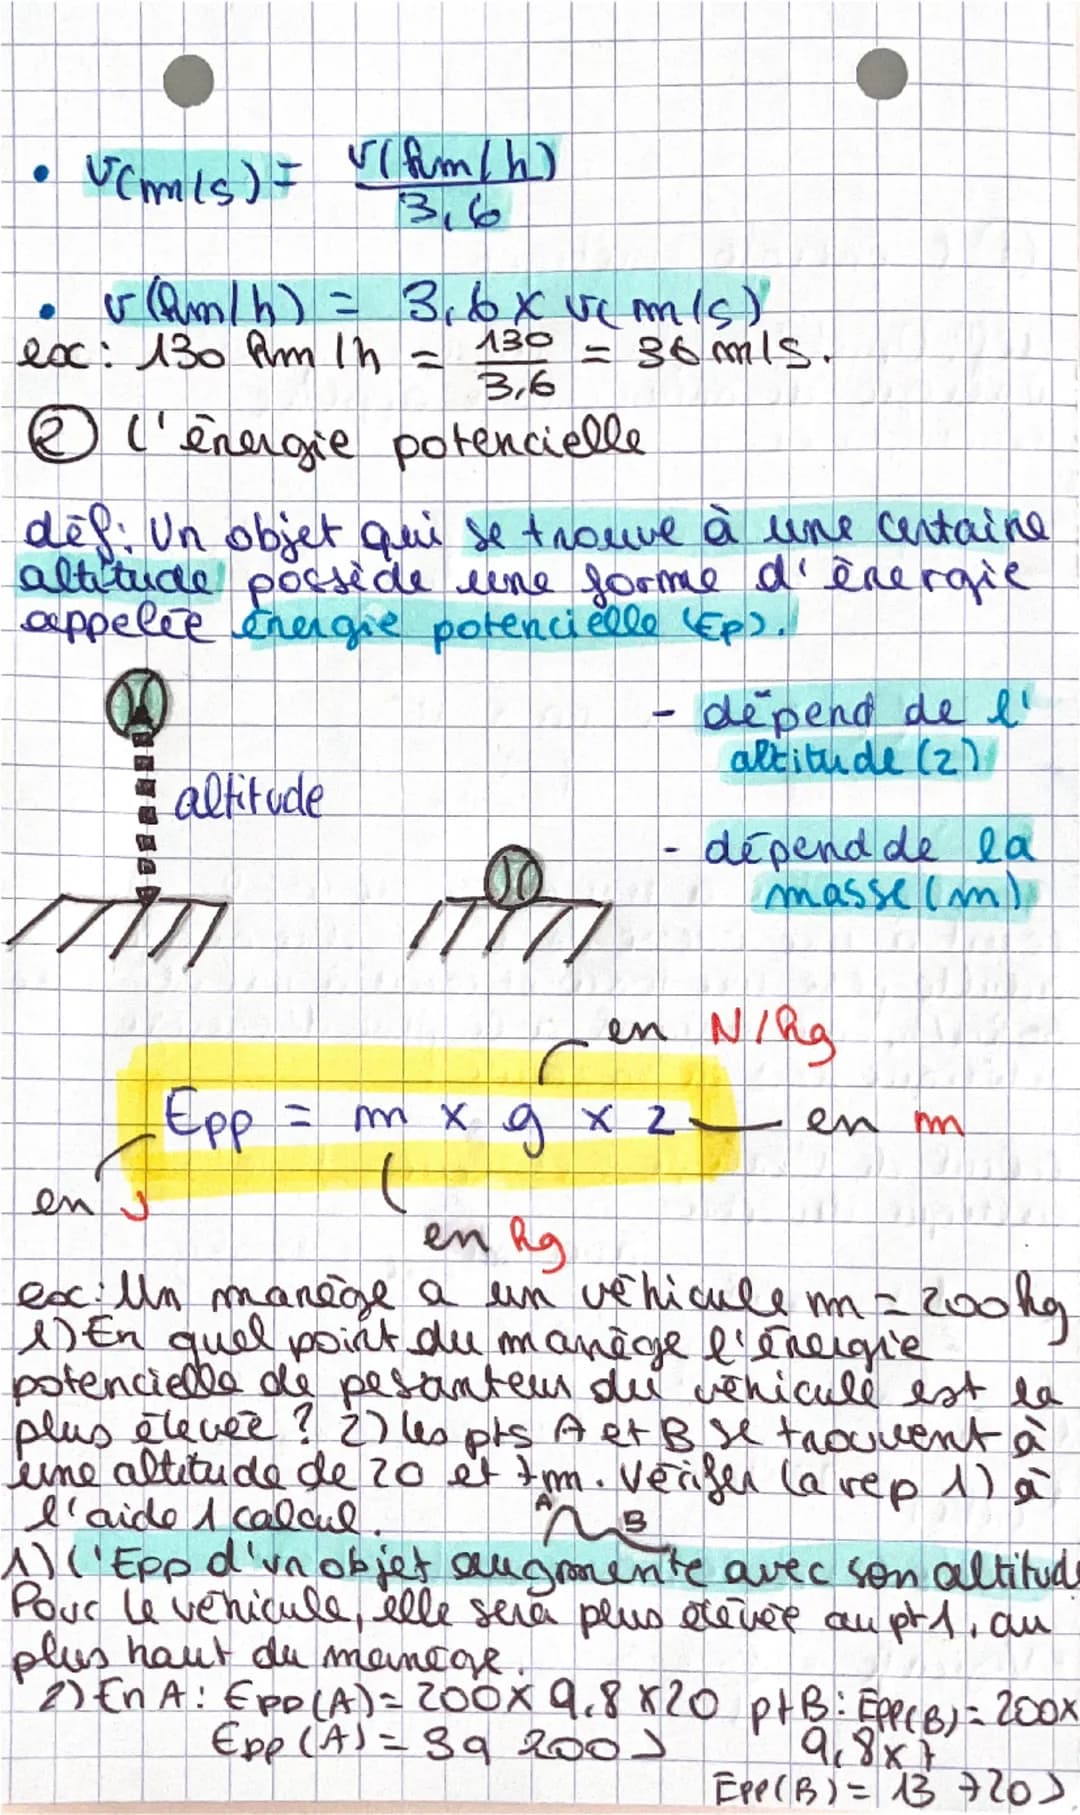 • v(m/s) = v(km/h) / 3,6
• v(km/h) = 3,6 x v(m/s)
ex: 130 km/h = 130 / 3,6 = 36 m/s.
② l'énergie potencielle
déf: Un objet qui se trouve à une certaine
altitude possède une forme d'énergie
appelée énergie potencielle (Ep).
- dépend de l'
altitude (z)
altitude
- dépend de la
masse (m)
en N/kg
Epp = m x g x z en m
en J
en kg
ex: Un manège a un véhicule m = 200kg
1) En quel point du manège l'énergie
potencielle de pesanteur du véhicule est la
plus élevée ? 2) les pts A et B se trouvent à
une altitude de 20 et 7m. Vérifer la rep 1) à
l'aide 1 calcul. A B
1) L'Epp d'un objet augmente avec son altitude
Pour le véhicule, elle sera plus élevée au pt 1, au
plus haut du manège.
2) En A: Epp(A) = 200 x 9,8 x 20 pt B: Epp(B) = 200x
Epp(A) = 39 200 J 9,8 x 7
Epp(B) = 13 720 J